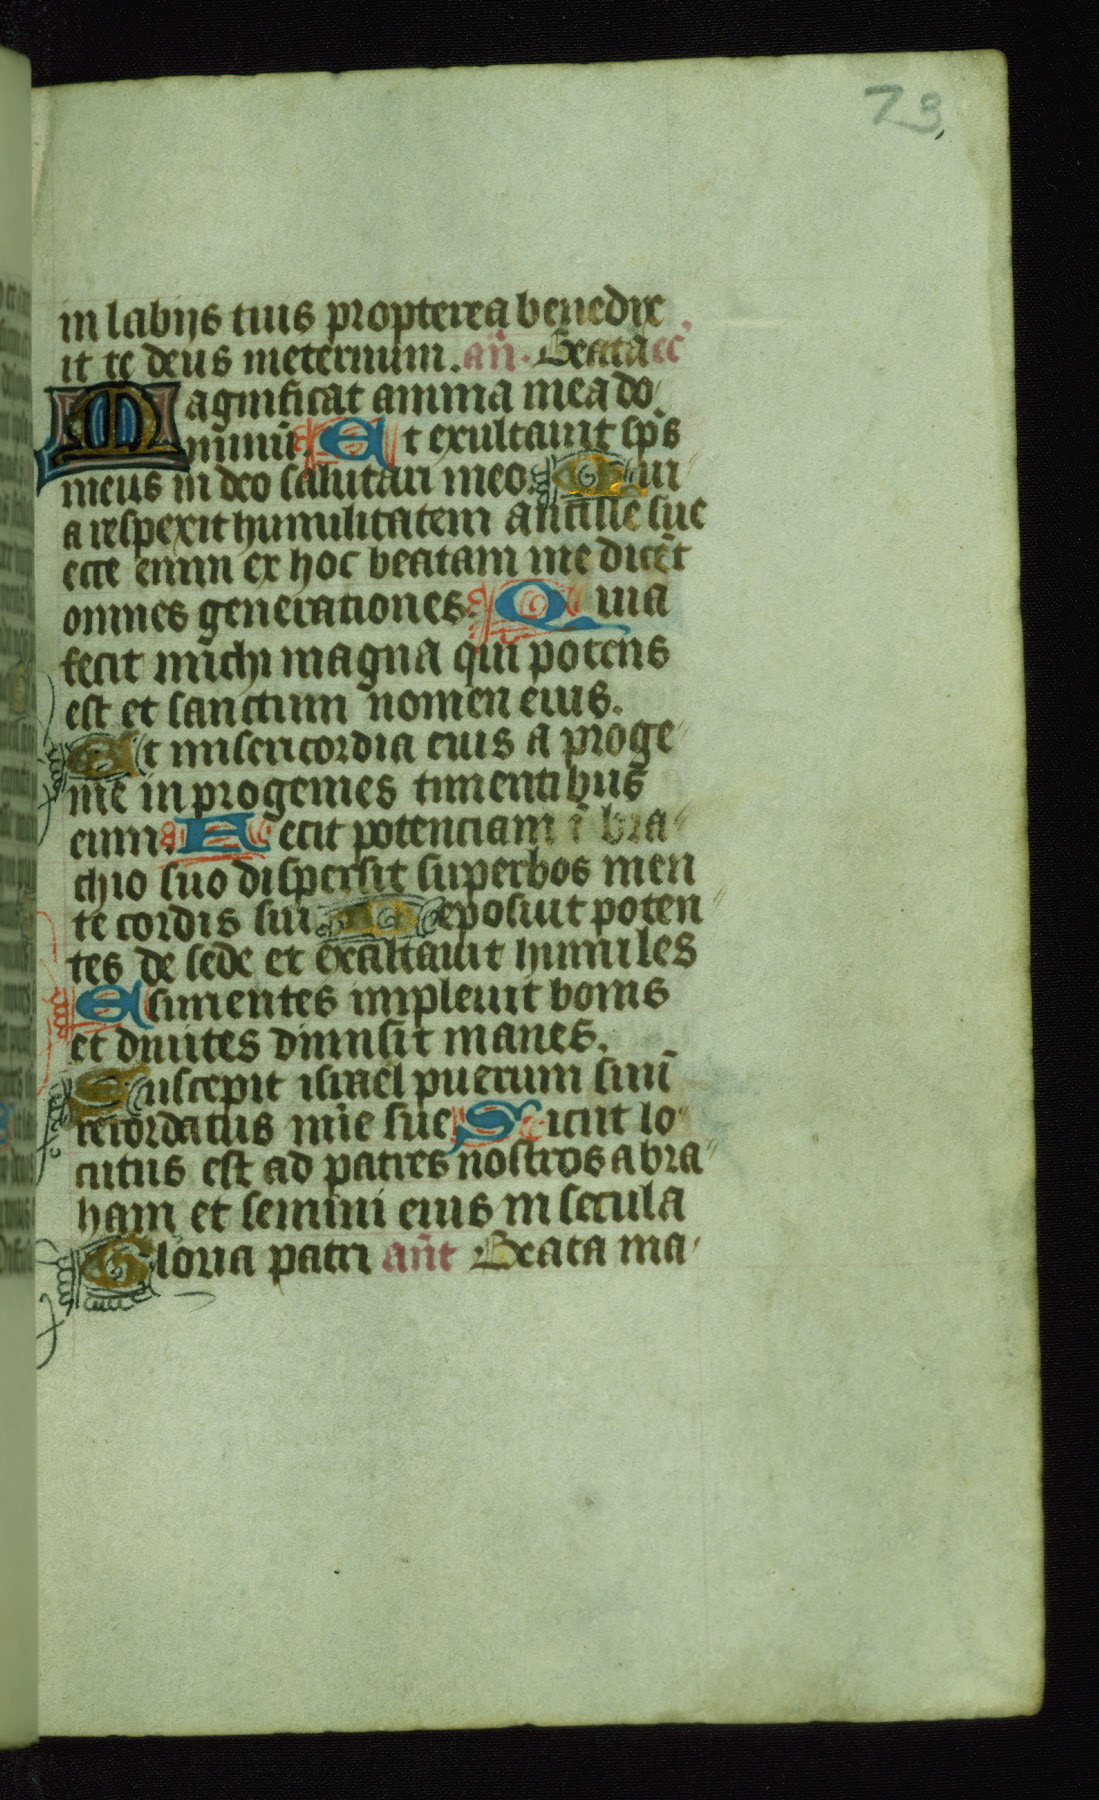 73
in labijs tuis propterea benedix
it te deus ineternum. an̄. Beata ec̄
Magnificat anima mea do
minū Et exultauit sp̄s
meus in deo salutari meo. Qui
a respexit humilitatem ancille sue
ecce enim ex hoc beatam me dicēt
omnes generationes. Quia
fecit michi magna qui potens
est et sanctum nomen eius.
Et misericordia eius a proge
nie in progenies timentibus
eum. Fecit potenciam ī bra
chio suo dispersit superbos men
te cordis sui Deposuit poten
tes de sede et exaltauit humiles
Esurientes impleuit bonis
et diuites dimisit inanes.
Suscepit israel puerum suū
recordatus mīe sue Sicut lo
cutus est ad patres nostros abra
ham et semini eius in secula
Gloria patri an̄t Beata ma